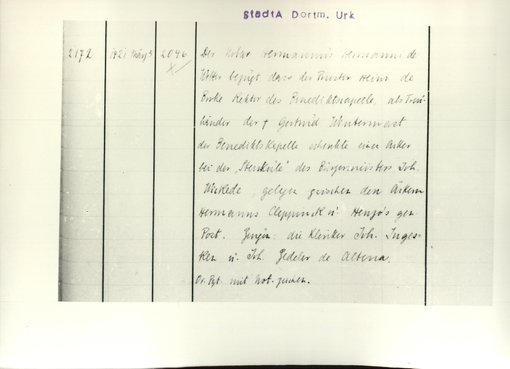 StadtA Dortm. Urk
2172 1421 März 3 2046 Der Notar Hermannus Hermanni de
bezeugt, dass der Priester Heino de
Rektor der Benediktskapelle, als Treu-
händer der † Gertrud Wintermast
der Benediktskapelle schenkte einen Acker
bei der "Steinkule" des Bürgermeisters Joh.
Wickede, gelegen zwischen den Äckern
Hermanns Cleppinck u. gen.
Post. Zeugen: die Kleriker Joh. Inges-
u. Joh. de Altena.
Or. Pgt. mit Not. zeichen.